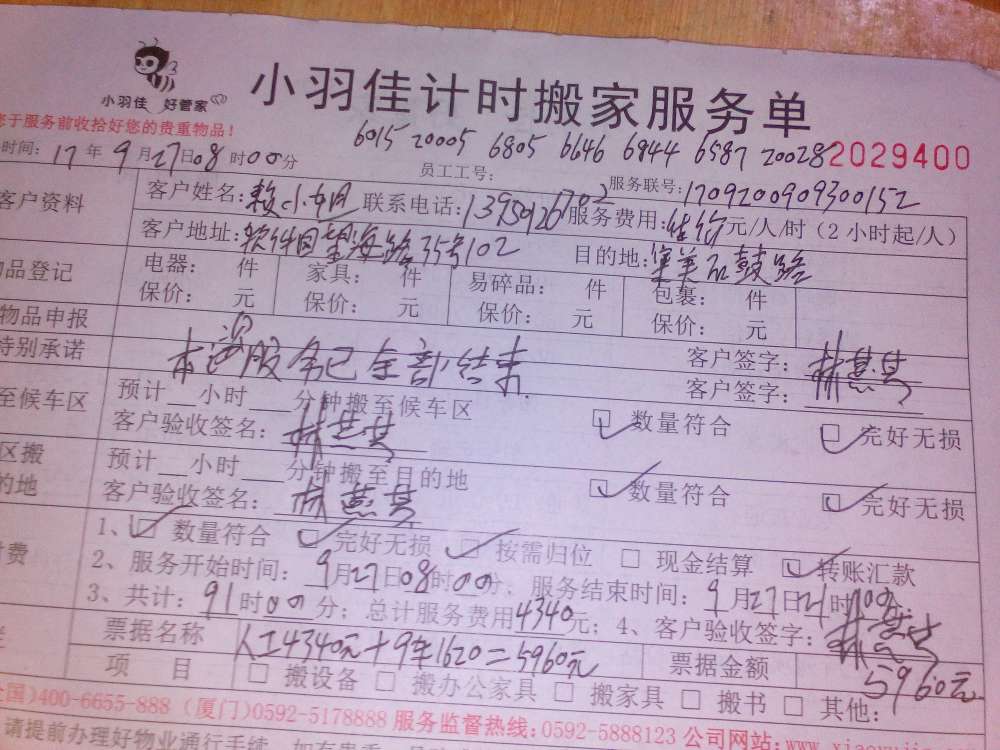 小羽佳计时搬家服务单
小羽佳 好管家
您于服务前收拾好您的贵重物品!
6015 20005 6805 6646 6944 6587 20028
2029400
时间: 17年9月27日08时00分 员工工号: 服务联号: 1709200909300152
客户资料 客户姓名: 赖小姐 联系电话: 服务费用: 元/人/时 (2小时起/人)
客户地址: 软件园望海路35号102 目的地: 集美石鼓路
品登记 电器: 件 家具: 件 易碎品: 件 包裹: 件
保价: 元 保价: 元 保价: 元 保价: 元
物品申报 客户签字:
特别承诺 本次服务已全部结束 客户签字:
至候车区 预计 小时 分钟搬至候车区
客户验收签名: 数量符合 完好无损
区搬 预计 小时 分钟搬至目的地
的地 客户验收签名: 数量符合 完好无损
1、 数量符合 完好无损 按需归位 现金结算 转账汇款
费 2、服务开始时间: 9月27日08时00分; 服务结束时间: 9月27日21时00分;
3、共计: 91时00分; 总计服务费用4340元; 4、客户验收签字:
票据名称 人工4340元+9车1620=5960元 票据金额 5960元
项 目 搬设备 搬办公家具 搬家具 搬书 其他:
国)400-6655-888 (厦门)0592-5178888 服务监督热线: 0592-5888123 公司网站:
请提前办理好物业通行手续,